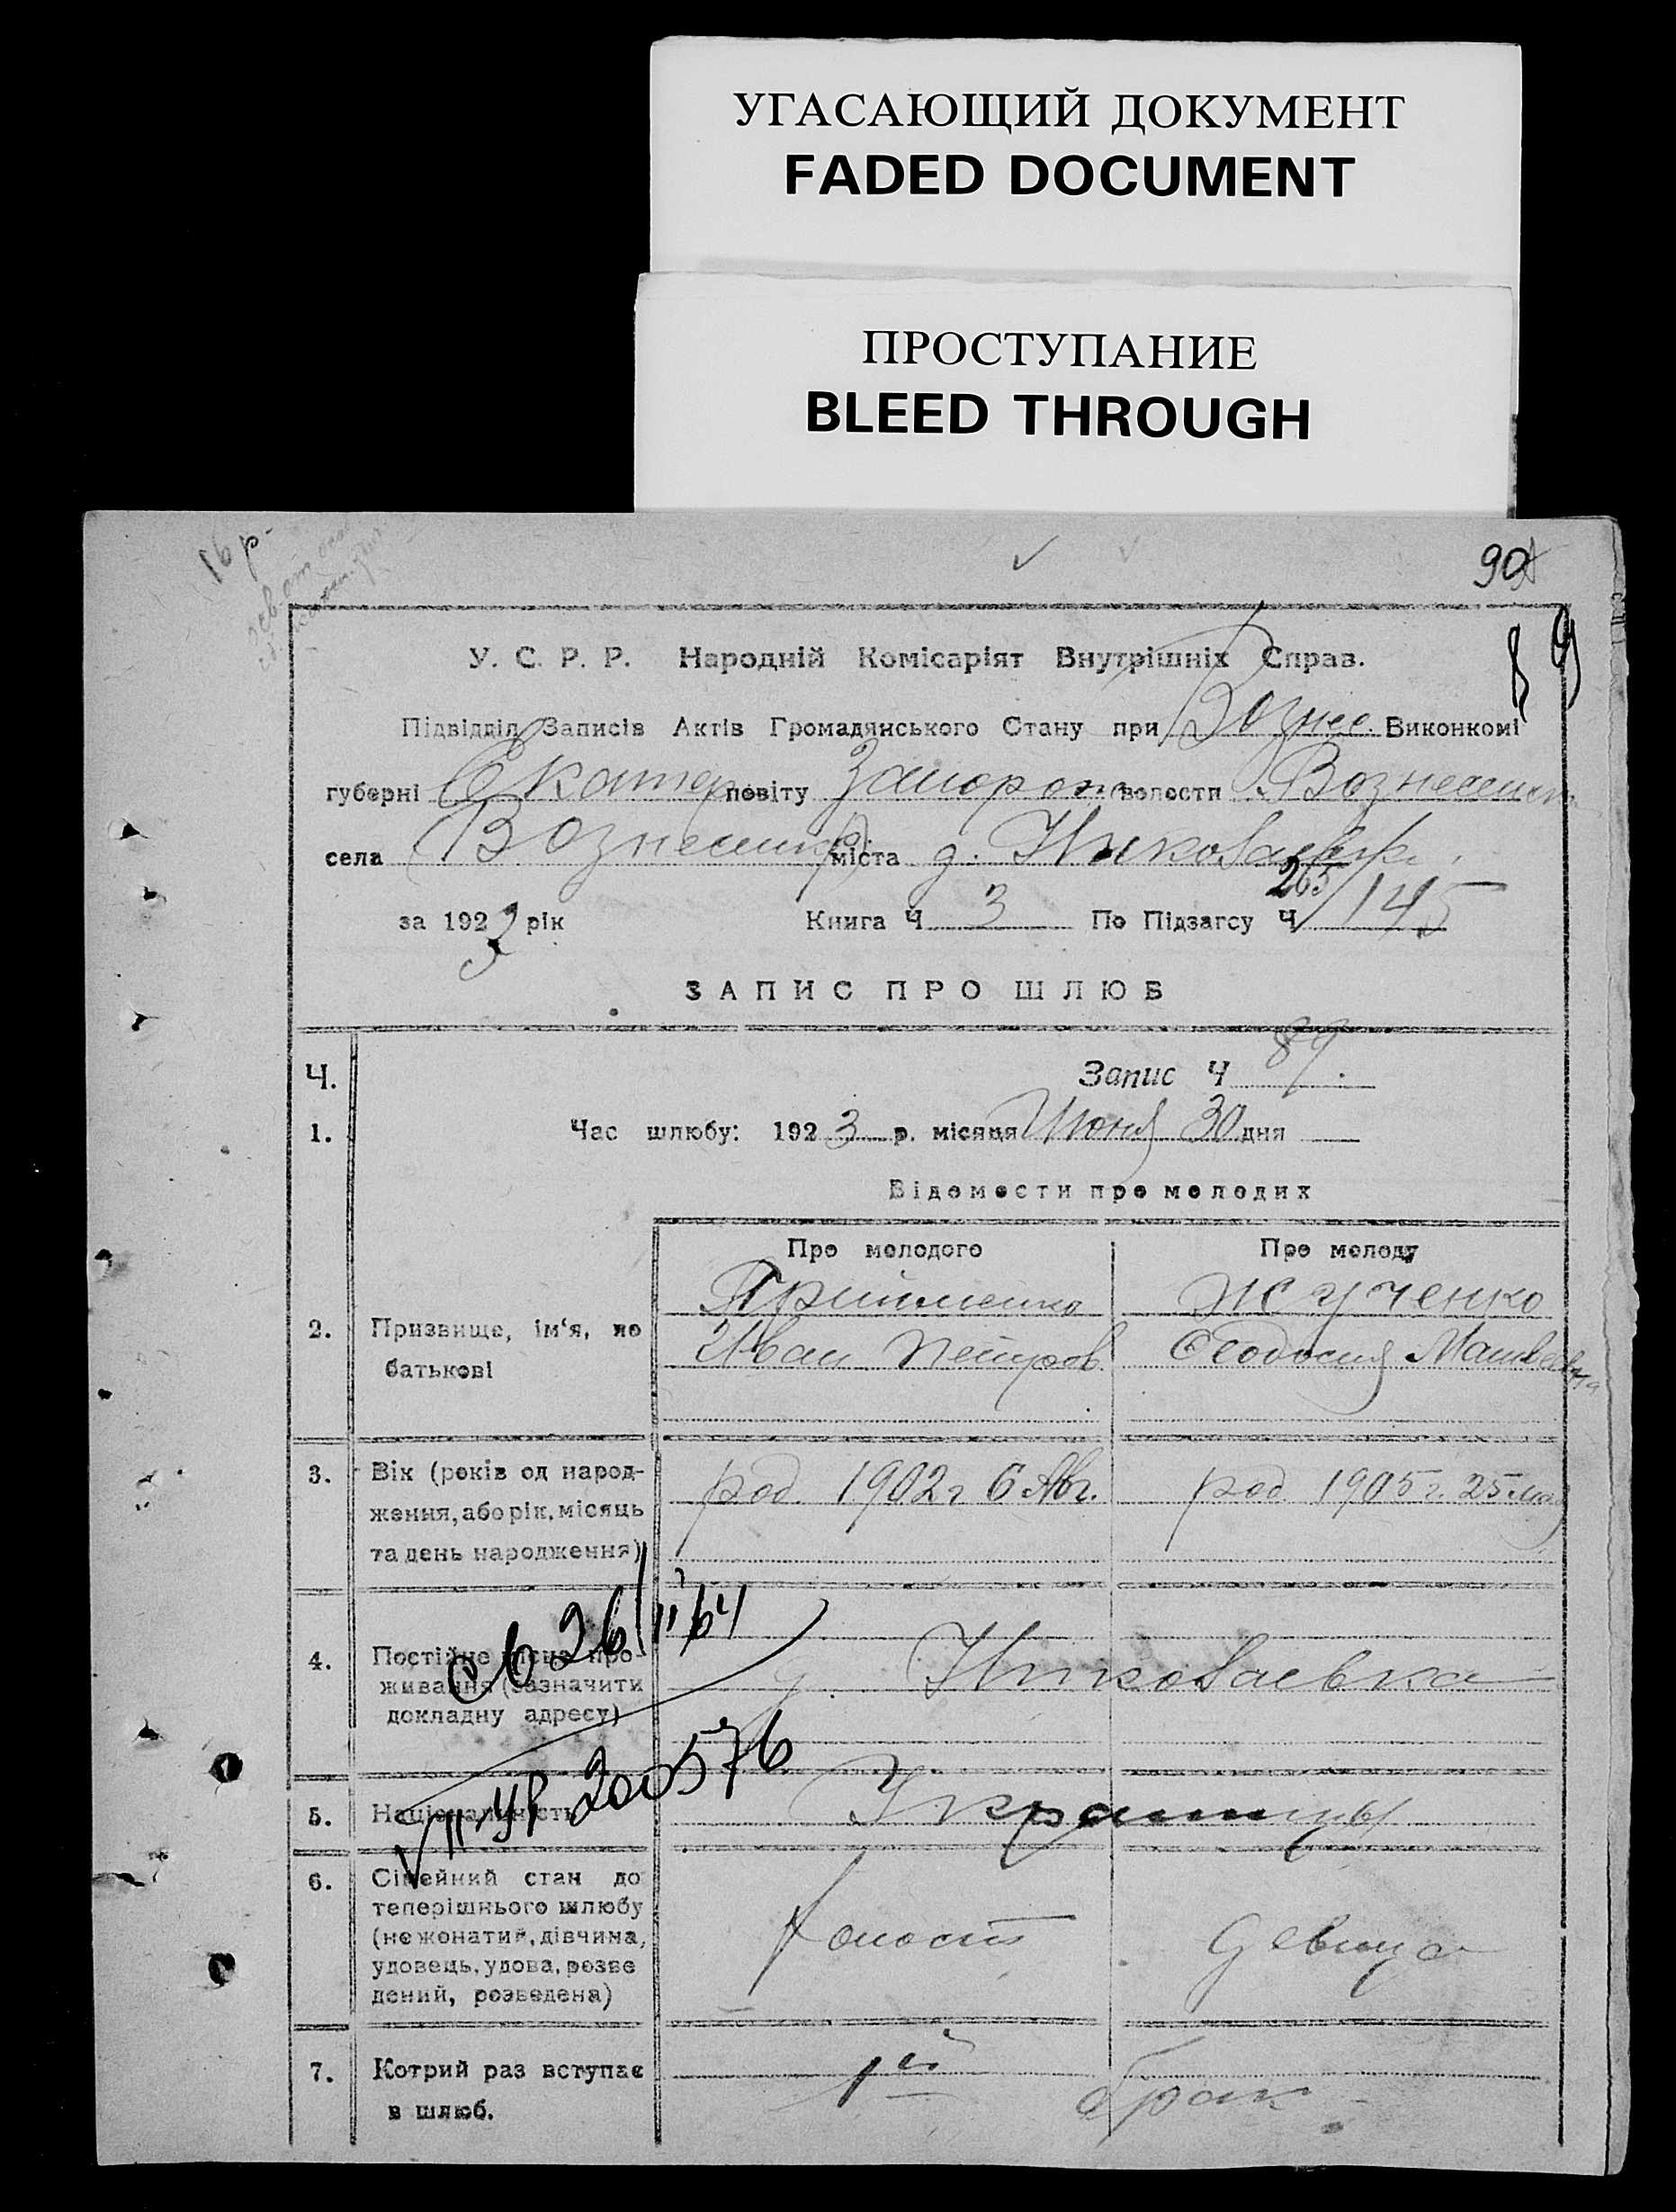 УГАСАЮЩИЙ ДОКУМЕНТ
FADED DOCUMENT
ПРОСТУПАНИЕ
BLEED THROUGH
16 р.
90
89
У. С. Р. Р. Народній Комісаріят Внутрішніх Справ.
Підвідділ Записів Актів Громадянського Стану при Вознес. Виконкомі
губерні Екатер повіту Запорож волости Вознесенск
села (Вознесенкр) міста д. Николаевк.
за 1923 рік Книга Ч 3 По Підзагсу Ч 265/145
ЗАПИС ПРО ШЛЮБ
Ч. Запис Ч 89.
1. Час шлюбу: 1923 р. місяця Июня 30 дня
Відомости про молодих
Про молодого Про молоду
Прийменко Жученко
2. Призвище, ім‘я, по Иван Петров Феодосия Матвеевна
батькові
3. Вік (років од народ- род. 1902 г 6 Авг. род 1905 г. 25 мая
ження, або рік, місяць
та день народження)
св 26/II 64
4. Постійне місце про-
живання (зазначити д. Николаевка
докладну адресу)
5. Національність Украинцы
VII УР 200576
6. Сімейний стан до
теперішнього шлюбу
(не жонатий, дівчина, холост девица
удовець, удова, розве
дений, розведена)
7. Котрий раз вступає 1ый брак
в шлюб.